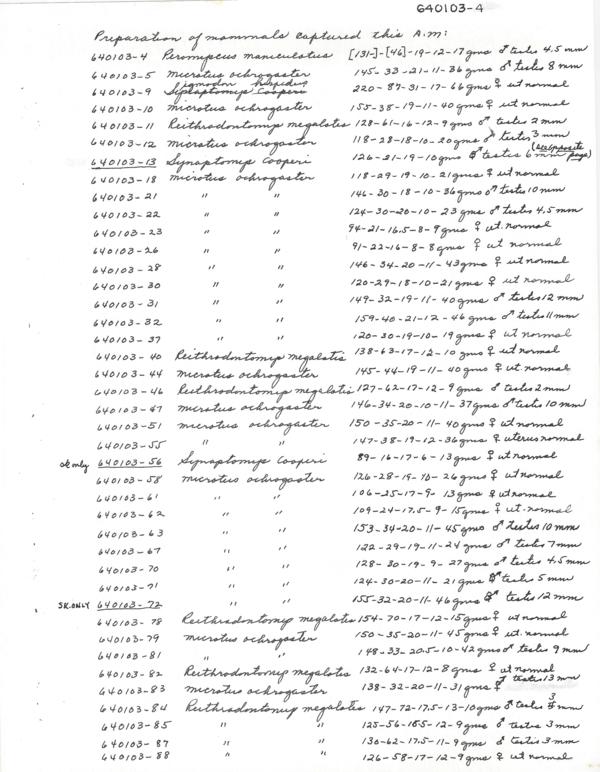 640103-4
Preparation of mammals captured this A.M:
640103-4 Peromyscus maniculatus [131-]-[46]-19-12-17gms ♂ testes 4.5 mm
640103-5 Microtus ochrogaster 145-33-21-11-36 gms ♂ testes 8 mm
Sigmodon hispidus
640103-9 Synaptomys cooperi 220-87-31-17-66gms ♀ ut normal
640103-10 Microtus ochrogaster 155-38-19-11-40gms ♀ ut normal
640103-11 Reithrodontomys megalotis 128-61-16-12-9gms ♂ testes 2mm
640103-12 Microtus ochrogaster 118-28-18-10-20gms ♂ testes 3 mm
640103-13 Synaptomys cooperi 126-21-19-10gms ♂ testes 6mm (see opposite page)
640103-18 Microtus ochrogaster 118-29-19-10-21gms ♀ ut normal
640103-21 " " 146-30-18-10-36gms ♂ testes 10mm
640103-22 " " 124-30-20-10-23 gms ♂ testes 4.5 mm
640103-23 " " 94-21-16.5-8-9gms ♀ ut. normal
640103-26 " " 91-22-16-8-8gms ♀ ut normal
640103-28 " " 146-34-20-11-43gms ♀ ut normal
640103-30 " " 120-29-18-10-21gms ♀ ut normal
640103-31 " " 149-32-19-11-40gms ♂ testes 12mm
640103-32 " " 159-40-21-12-46gms ♂ testes 11mm
640103-37 " " 120-30-19-10-19gms ♀ ut normal
640103-40 Reithrodontomys megalotis 138-63-17-12-10 gms ♀ ut normal
640103-44 Microtus ochrogaster 145-44-19-11-40gms ♀ ut normal
640103-46 Reithrodontomys megalotis 127-62-17-12-9gms ♂ testes 2mm
640103-47 Microtus ochrogaster 146-34-20-10-11-37gms ♂ testes 10mm
640103-51 Microtus ochrogaster 150-35-20-11-40gms ♀ ut normal
640103-55 " " 147-38-19-12-36gms ♀ uterus normal
sk only 640103-56 Synaptomys cooperi 89-16-17-6-13gms ♀ ut normal
640103-58 Microtus ochrogaster 126-28-19-10-26gms ♀ ut normal
640103-61 " " 106-25-17-9-13gms ♀ ut normal
640103-62 " " 109-24-17.5-9-15gms ♀ ut. normal
640103-63 " " 153-34-20-11-45gms ♂ testes 10 mm
640103-67 " " 122-29-19-11-24 gms ♂ testes 7mm
640103-70 " " 128-30-19-9-27gms ♂ testes 4.5mm
640103-71 " " 124-30-20-11-21gms ♂ testes 5 mm
SK. ONLY 640103-72 " " 155-32-20-11-46gms ♂ testes 12mm
640103-78 Reithrodontomys megalotis 154-70-17-12-15gms ♀ ut normal
640103-79 Microtus ochrogaster 150-35-20-11-45gms ♀ ut. normal
640103-81 " " 148-33-20.5-10-42gms ♂ testes 9 mm
640103-82 Reithrodontomys megalotis 132-64-17-12-8gms ♀ ut normal
640103-83 Microtus ochrogaster 138-32-20-11-31gms ♂ testes 13mm
640103-84 Reithrodontomys megalotis 147-72-17.5-13-10gms ♂ testes 3 mm
640103-85 " " 125-56-16.5-12-9gms ♂ testes 3 mm
640103-87 " " 130-62-17.5-11-9gms ♂ testes 3mm
640103-88 " " 126-58-17-12-9gms ♀ ut normal